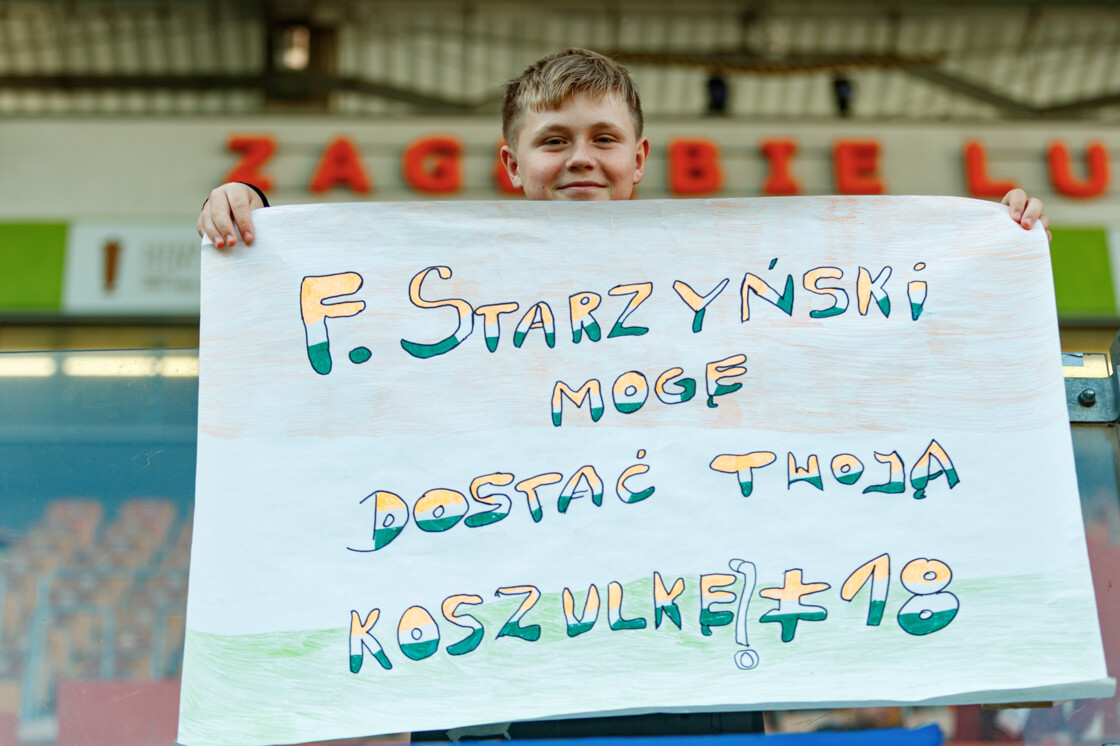 ZAG BIE LU
F. STARZYŃSKI
MOGĘ
DOSTAĆ TWOJĄ
KOSZULKĘ! #18